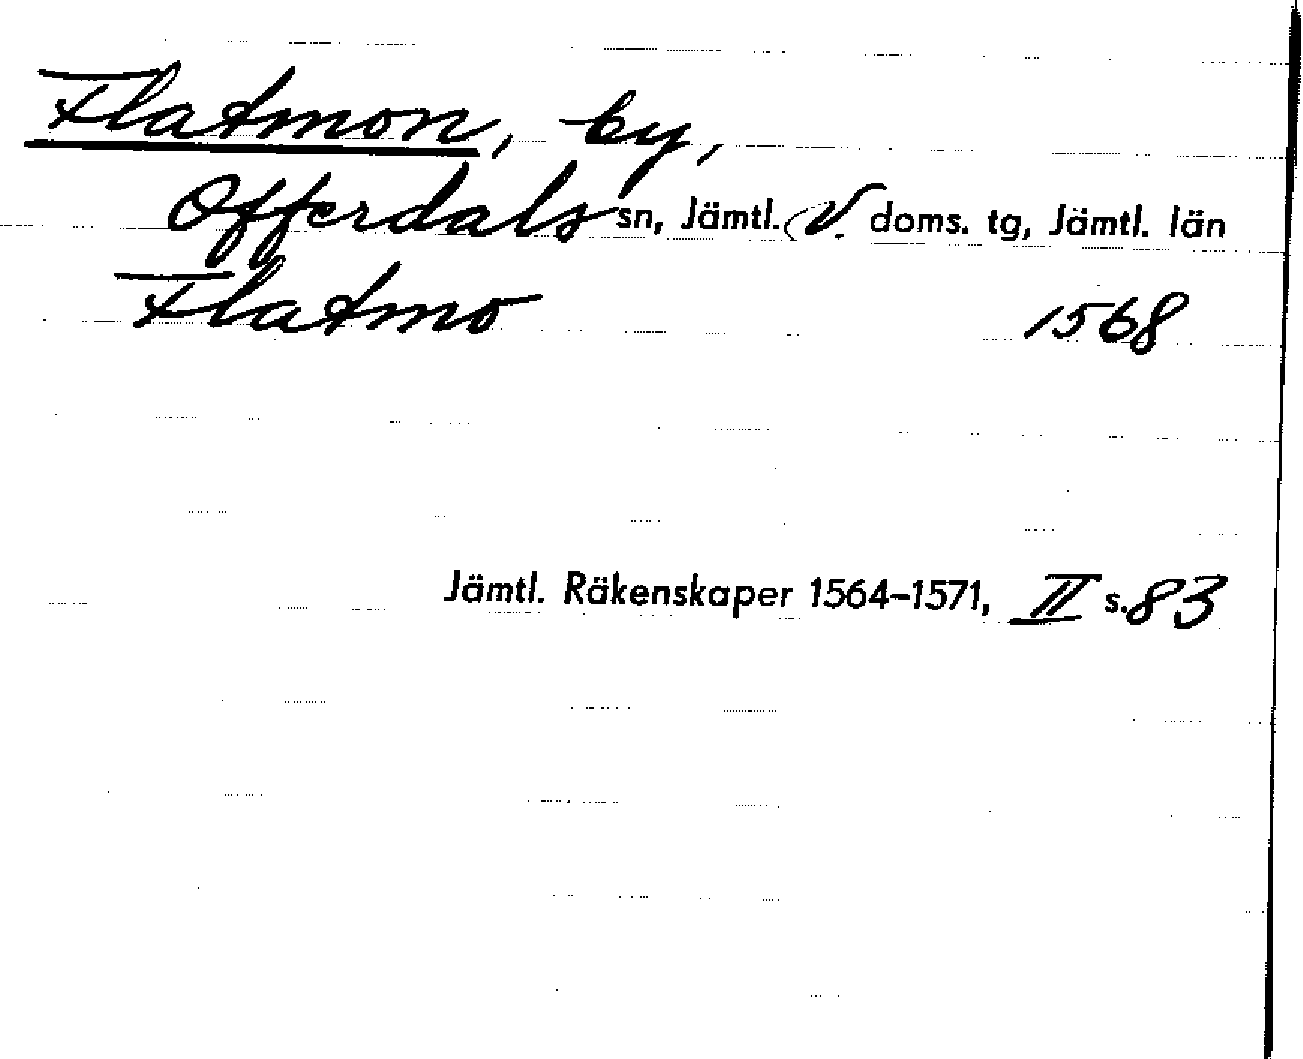 Flatmon, by,
Offerdals sn, Jämtl. V. doms. tg, Jämtl. län
Flatmo 1568
Jämtl. Räkenskaper 1564-1571, II s. 83